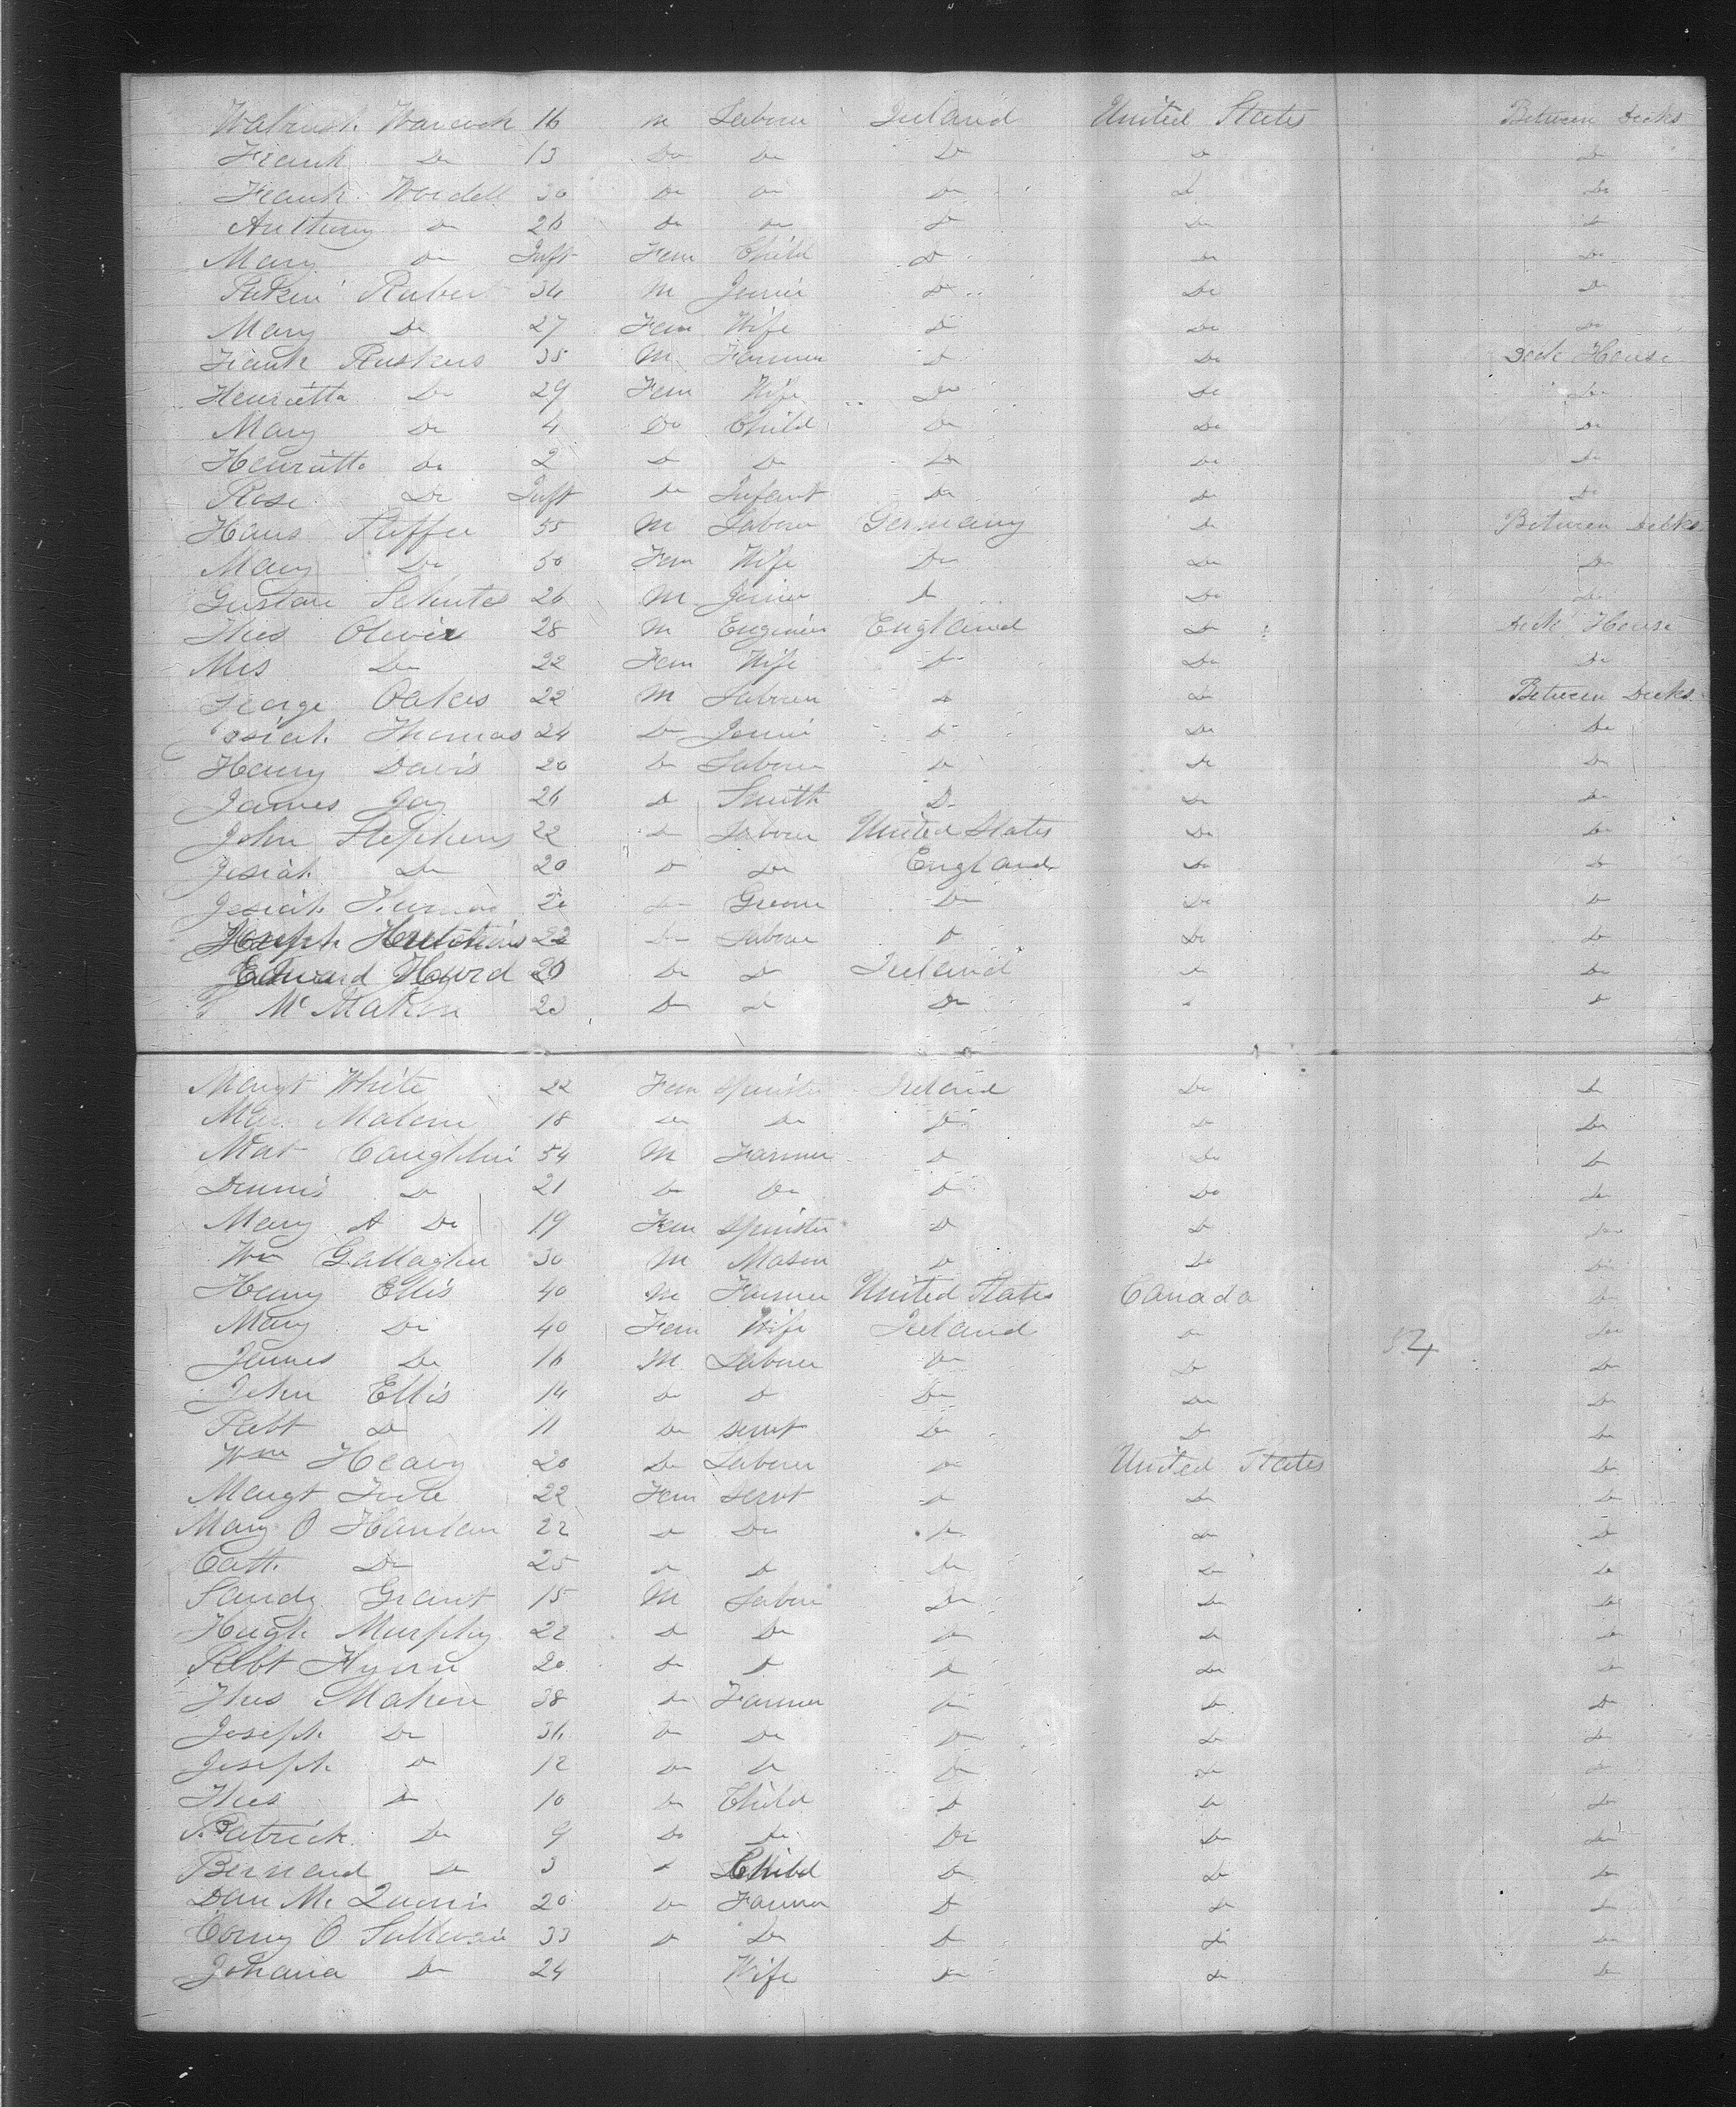 Warcock 16 M Laborer Ireland United States Between Decks
Frank Do 13 Do Do Do Do Do
Frank Wordell 30 Do Do Do Do Do
Anthony Do 26 Do Do Do Do Do
Mary Do Inft Fem Child Do Do Do
Robert 34 M Joiner Do Do Do
Mary Do 27 Fem Wife Do Do Do
Frank Ruskens 35 M Farmer Do Do Deck House
Henrietta Do 29 Fem Wife Do Do Do
Mary Do 4 Do Child Do Do Do
Henrietta Do 2 Do Do Do Do Do
Rose Do Inft Do Infant Do Do Do
Hans Steffen 55 M Laborer Germany Do Between Decks
Mary Do 50 Fem Wife Do Do Do
Gustave Schutes 26 M Joiner Do Do Do
Thos Oliver 28 M Engineer England Do Deck House
Mrs Do 22 Fem Wife Do Do Do
George Oakes 22 M Laborer Do Do Between Decks
Josiah Thomas 24 Do Joiner Do Do Do
Henry Davis 20 Do Laborer Do Do Do
James Jay 26 Do Smith Do Do Do
John Stephens 22 Do Laborer United States Do Do
Josiah Do 20 Do Do England Do Do
Josiah Do Groom Do Do Do
Joseph Hutchins 22 Do Laborer Do Do Do
Edward Hurd 20 Do Do Ireland Do Do
Mc Mahon 23 Do Do Do Do Do
Margt White 22 Fem Spinster Ireland Do Do
Malone 18 Do Do Do Do Do
Mat Coughlin 54 M Farmer Do Do Do
Dennis Do 21 Do Do Do Do Do
Mary A Do 19 Fem Spinster Do Do Do
Wm Gallagher 30 M Mason Do Do Do
Henry Ellis 40 M Farmer United States Canada Do
Mary Do 40 Fem Wife Ireland Do Do
James Do 16 M Laborer Do Do Do
John Ellis 14 Do Do Do Do Do
Robt Do 11 Do Servt Do Do Do
Wm Heavy 20 Do Laborer Do United States Do
Margt 22 Fem Servt Do Do Do
Mary O Hanlon 22 Do Do Do Do Do
Cath Do 25 Do Do Do Do Do
Sandy Grant 15 M Labor Do Do Do
Hugh Murphy 22 Do Do Do Do Do
Robt Flynn 20 Do Do Do Do Do
Thos Maher 38 Do Farmer Do Do Do
Joseph Do 36 Do Do Do Do Do
Joseph Do 12 Do Do Do Do Do
Thos Do 10 Do Child Do Do Do
Patrick Do 9 Do Do Do Do Do
Bernard Do 3 Do Child Do Do Do
Dan Mc Quinn 20 Do Farmer Do Do Do
Corny O Sullivan 33 Do Do Do Do Do
Johana Do 24 Wife Do Do Do